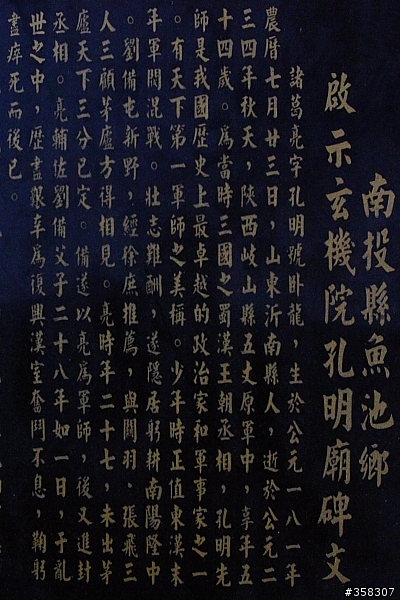 南投縣魚池鄉
啟示玄機院孔明廟碑文
諸葛亮字孔明號卧龍,生於公元一八一年
農曆七月廿三日,山東沂南縣人,逝於公元二
三四年秋天,陝西岐山縣五丈原軍中,享年五
十四歲。爲當時三國之蜀漢王朝丞相,孔明先
師是我國歷史上最卓越的政治家和軍事家之一
。有天下第一軍師之美稱。少年時正值東漢末
年軍閥混戰。壯志難酬,遂隱居躬耕南陽隆中
。劉備屯新野,經徐庶推薦,與關羽、張飛三
人三顧茅廬方得相見。亮時年二十七,未出茅
廬天下三分已定。備遂以亮爲軍師,後又進封
丞相。亮輔佐劉備父子二十八年如一日,于亂
世之中,歷盡艱辛爲復興漢室奮鬥不息,鞠躬
盡瘁死而後已。
#358307